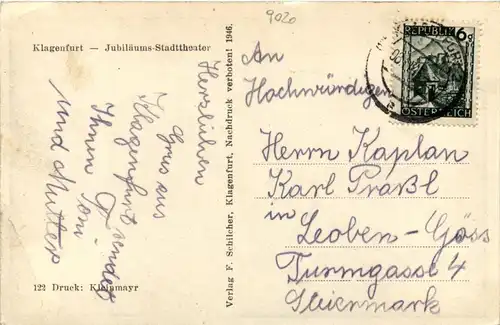 9020
Klagenfurt — Jubiläums-Stadttheater
Herzlichen
Gruss aus
Klagenfurt sendet
Ihnen Toni
und Mutter
122 Druck: Kleinmayr
Verlag F. Schilcher, Klagenfurt, Nachdruck verboten! 1946.
REPUBLIK 6g
ÖSTERREICH
An
Hochwürdigen
Herrn Kaplan
Karl Praßl
in
Leoben-Göss
Turmgasse 4
Steiermark